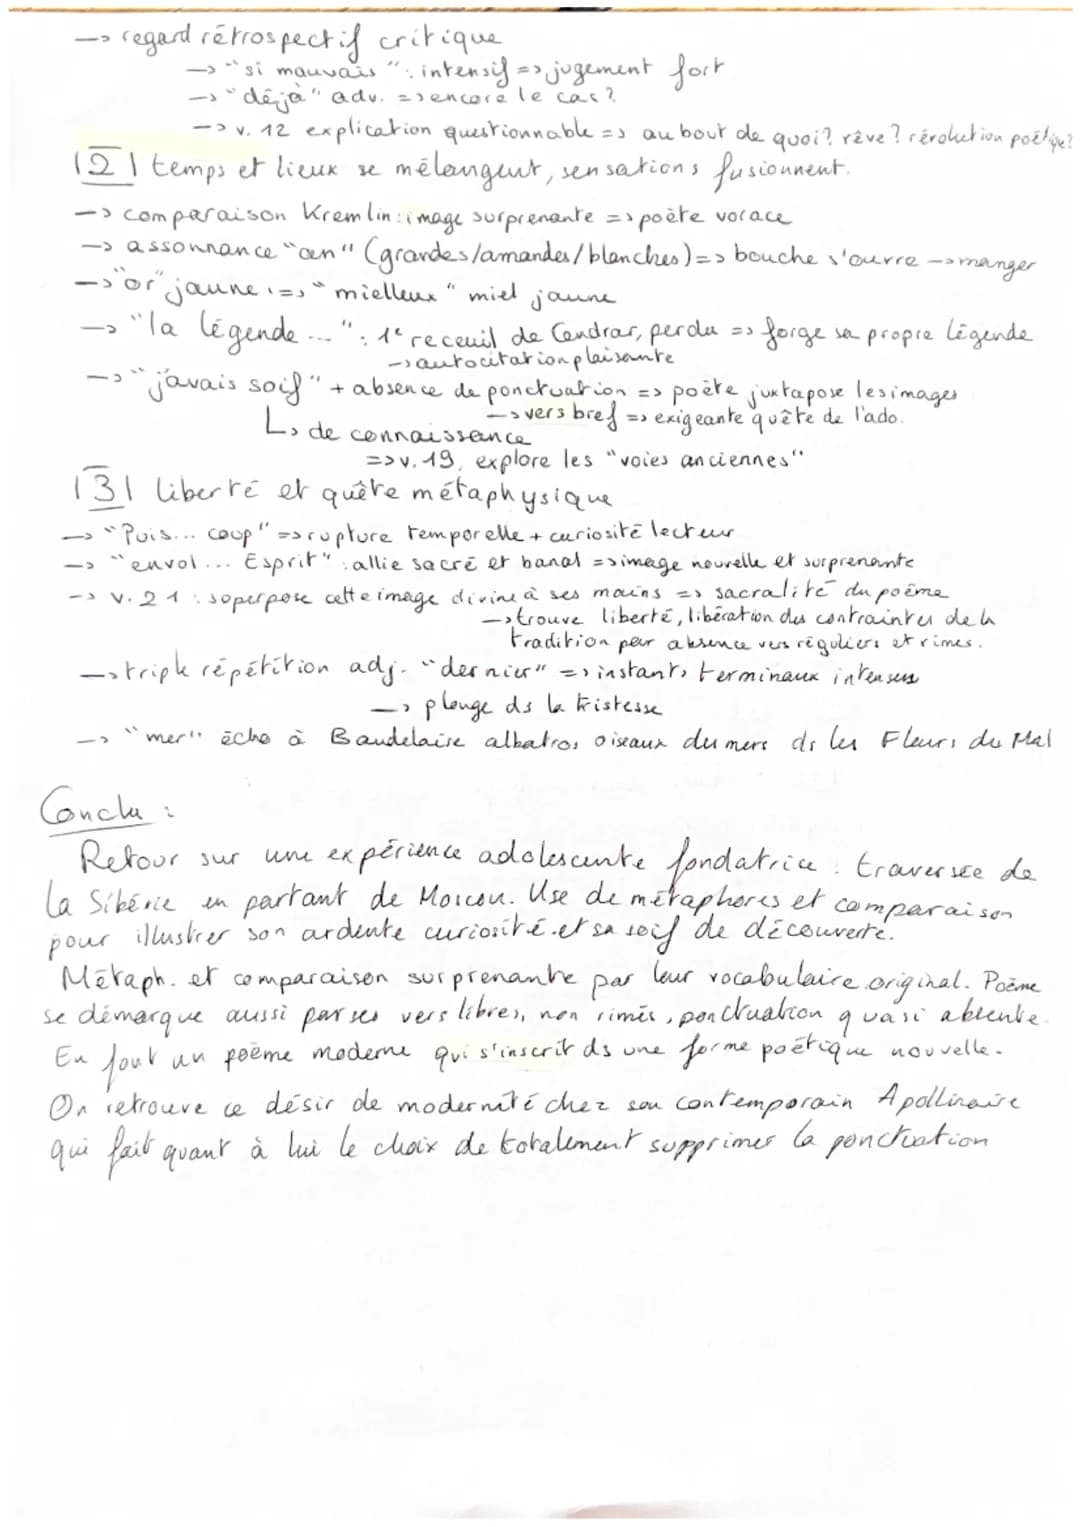 → regard rétrospectif critique
→ "si mauvais" : intensif => jugement fort
→ "déjà" adv. => encore le cas ?
→ v. 12 explication questionnable => au bout de quoi? rêve? révolution poétique?
|2| temps et lieux se mélangent, sensations fusionnent.
→ comparaison Kremlin : image surprenante => poète vorace
→ assonnance "an" (grandes/amandes/blanches) => bouche s'ouvre → manger
→ "or" jaune => "mielleux" miel jaune
→ "la légende ... " : 1e receuil de Cendrar, perdu => forge sa propre légende
→ autocitation plaisante
→ "j'avais soif" + absence de ponctuation => poète juxtapose les images
→ vers bref => exigeante quête de l'ado.
↳ de connaissance
=> v. 19, explore les "voies anciennes"
|3| liberté et quête métaphysique
→ "Puis... coup" => rupture temporelle + curiosité lecteur
→ "envol ... Esprit" : allie sacré et banal => image nouvelle et surprenante
→ v. 21 : soperpose cette image divine à ses mains => sacralité du poème
→ trouve liberté, libération des contraintes de la
tradition par absence vers réguliers et rimes.
→ triple répétition adj. "dernier" => instants terminaux intenses
→ plonge ds la tristesse
→ "mer" écho à Baudelaire albatros oiseaux du mers ds les Fleurs du Mal
Conclu :
Retour sur une expérience adolescente fondatrice : traversée de
la Sibérie en partant de Moscou. Use de métaphores et comparaison
pour illustrer son ardente curiosité et sa soif de découverte.
Métaph. et comparaison surprenante par leur vocabulaire original. Poème
se démarque aussi par ses vers libres, non rimés, ponctuation quasi absente.
En font un poème moderne qui s'inscrit ds une forme poétique nouvelle.
On retrouve ce désir de modernité chez son contemporain Apollinaire
qui fait quant à lui le choix de totalement supprimer la ponctuation